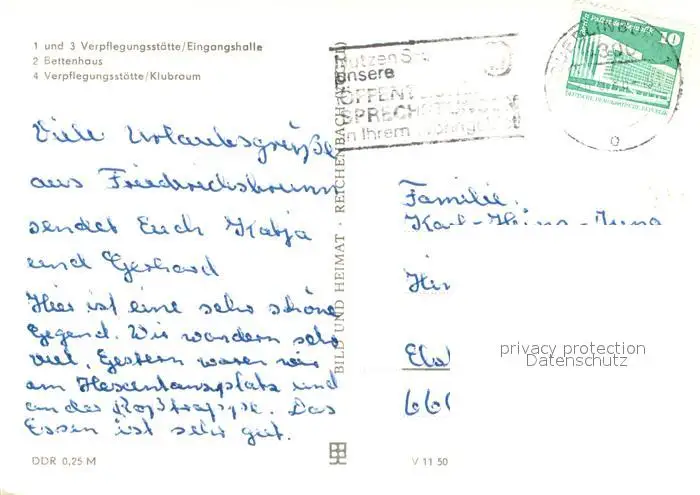 1 und 3 Verpflegungsstätte/Eingangshalle
2 Bettenhaus
4 Verpflegungsstätte/Klubraum
Viele Urlaubsgrüße
aus Friedrichsbrunn
sendet Euch Katja
und Gerhard
Hier ist eine sehr schöne
Gegend. Wir wandern sehr
viel. Gestern waren wir
am Hexentanzplatz und
an der Roßtrappe. Das
Essen ist sehr gut.
DDR 0,25 M
BILD UND HEIMAT · REICHENBACH
V 11 50
unsere
SPRECHSTUNDEN
in Ihrem
10
DEUTSCHE DEMOKRATISCHE REPUBLIK
Familie
Karl-Heinz Jung
privacy protection
Datenschutz